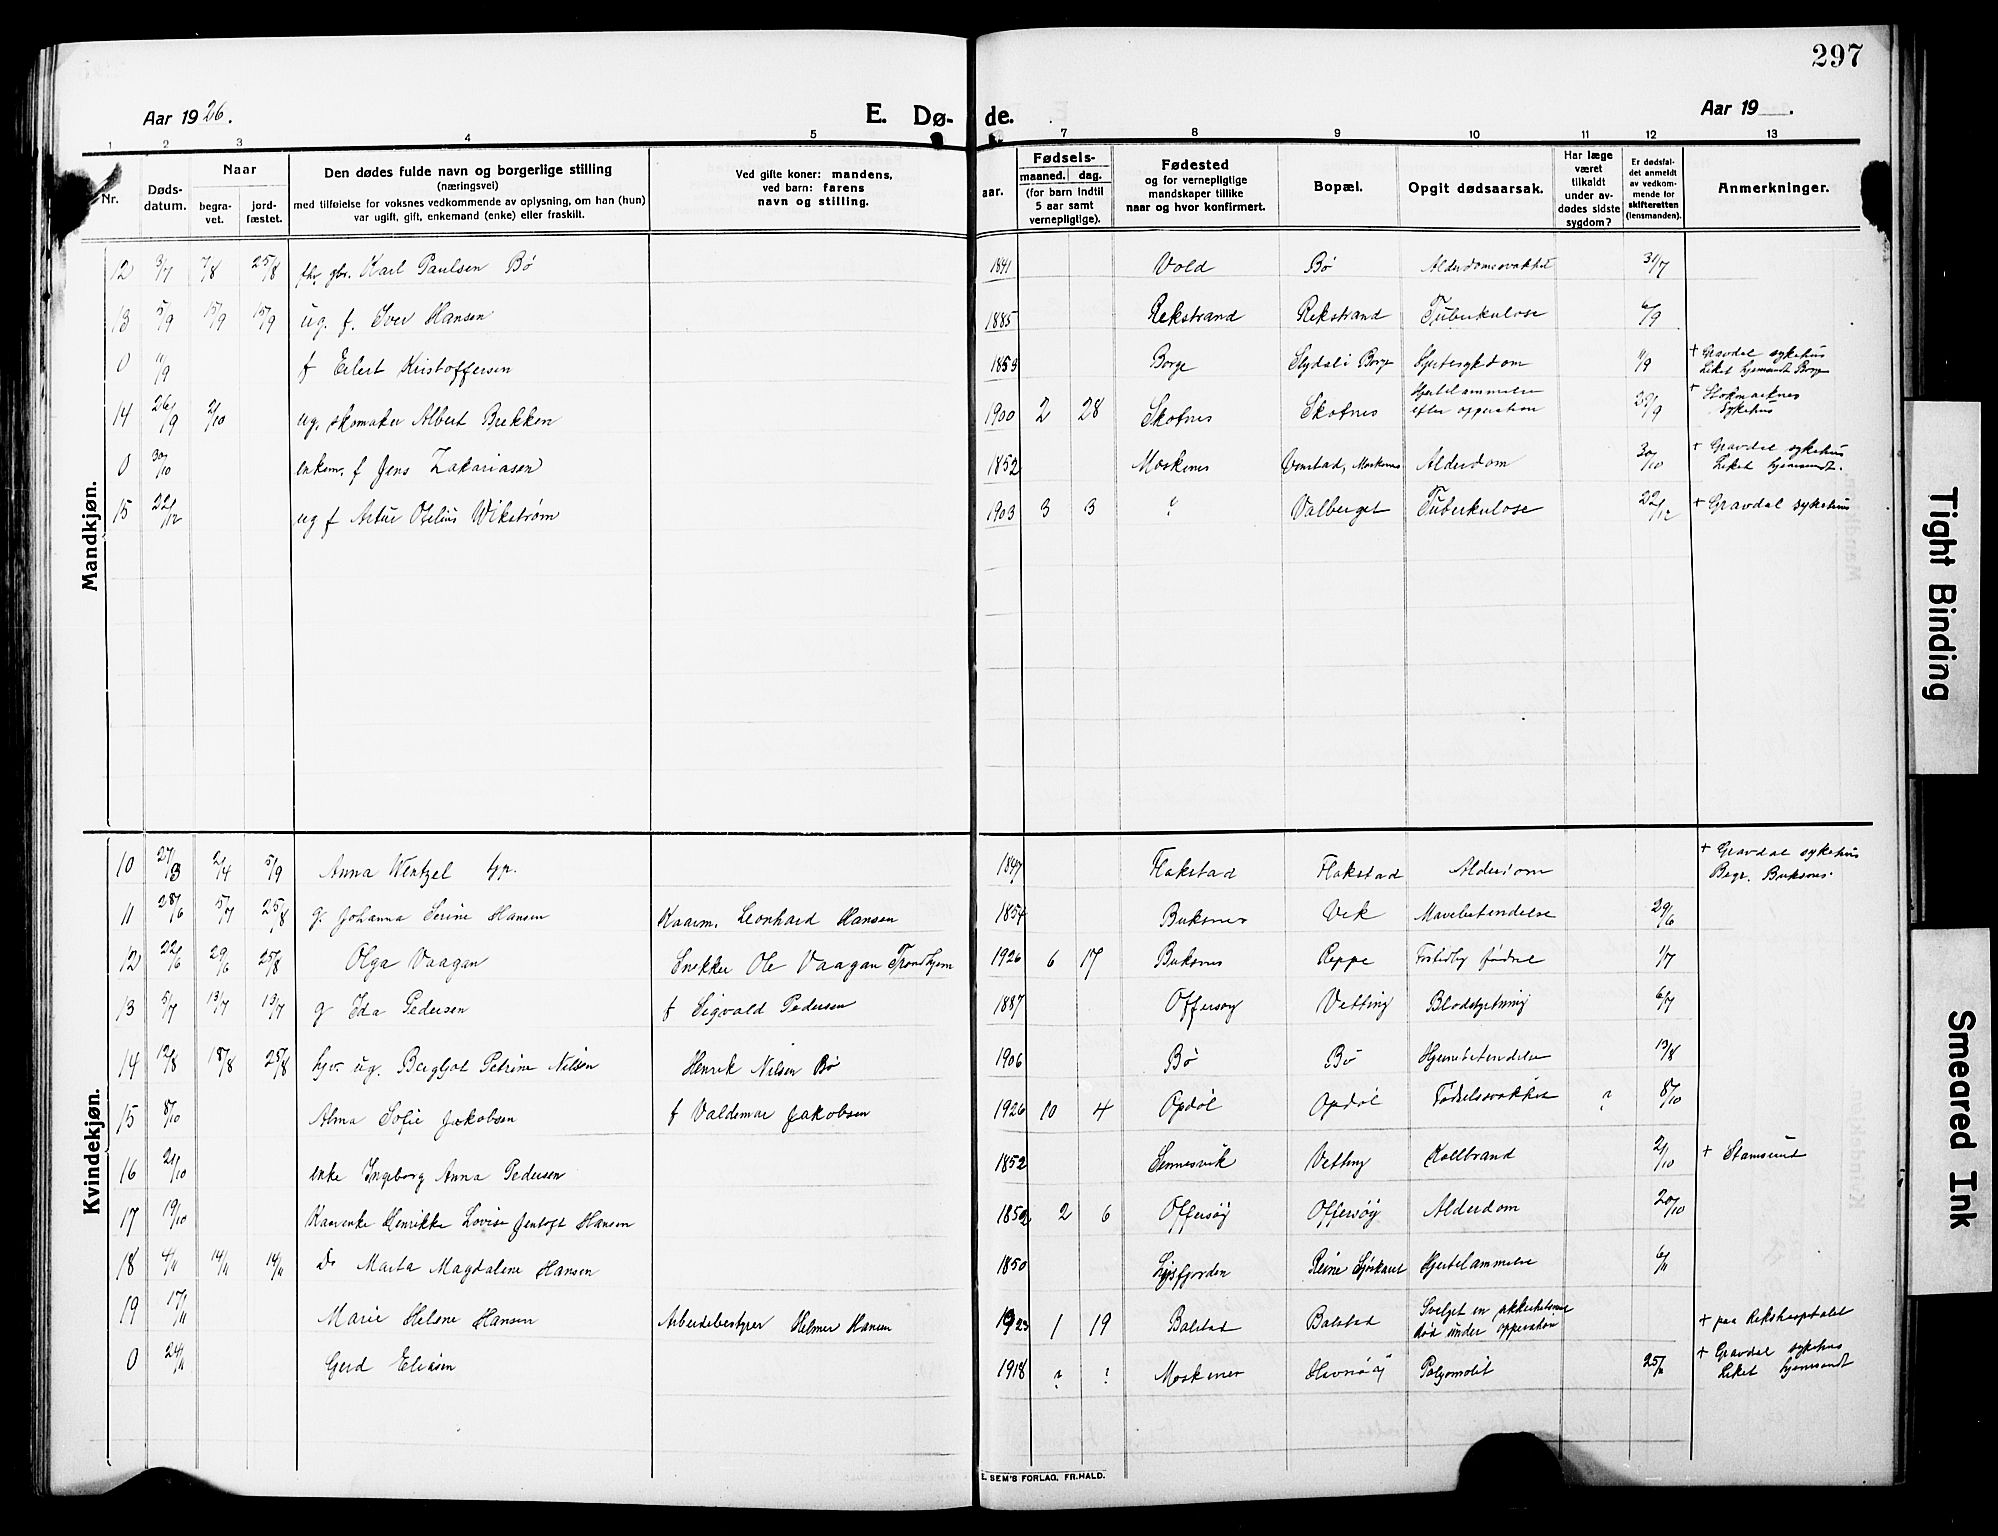 297
Aar 1926.
E. Dø- de.
Aar 19 .
1 2 3 4 5 7 8 9 10 11 12 13
Nr.
Døds-
datum.
Naar
begra-
vet.
jord-
fæstet.
Den dødes fulde navn og borgerlige stilling
(næringsvei)
med tilføielse for voksnes vedkommende av oplysning, om han (hun)
var ugift, gift, enkemand (enke) eller fraskilt.
Ved gifte koner: mandens,
ved barn: farens
navn og stilling.
aar.
Fødsels-
maaned. dag.
(for barn indtil
5 aar samt
vernepligtige).
Fødested
og for vernepligtige
mandskaper tillike
naar og hvor konfirmert.
Bopæl.
Opgit dødsaarsak.
Har læge
været
tilkaldt
under av-
dødes sidste
sygdom?
Er dødsfal-
det anmeldt
av vedkom-
mende for
skifteretten
(lensmanden).
Anmerkninger.
Mandkjøn.
12 3/7 7/8 25/8 Karl Paulsen Bø 1841 Vold Bø 31/7
13 5/9 15/9 15/9 ug. f. Iver Hansen 1885 Rekstrand Rekstrand Tuberkulose 6/9
0 11/9 f Eilert Kristoffersen 1853 Borge i Borge Hjertesykdom 11/9 + Gravdal sykehus
Liket hjemsendt Borge
14 26/9 2/10 ug. skomaker Albert Brekken 1900 2 28 Skotnes Skotnes Hjertelammelse
efter opperation 29/9 + Stokmarknes
Sykehus
0 30/10 enkem. f Jens Zakariasen 1852 Moskenes Moskenes Alderdom 30/10 + Gravdal sykehus
Liket hjemsendt.
15 22/12 ug f Artur Otelius Wikstrøm 1903 3 3 ? Valberget Tuberkulose 22/12 + Gravdal sykehus
Kvindekjøn.
10 27/3 2/4 5/9 Anna Wentzel 1847 Flakstad Flakstad Alderdom + Gravdal sykehus
Begr. Buksnes.
11 28/6 5/7 25/8 g Johanna Serine Hansen Kaarm. Leonhard Hansen 1854 Buksnes Vik Mavebetendelse 29/6
12 22/6 29/6 25/8 Olga Vaagan Snekker Ole Vaagan Trondhjem 1926 6 17 Buksnes Reppe Fortidlig født 1/7
13 5/7 13/7 13/7 g Ida Pedersen f Sigvald Pedersen 1887 Offersøy Vetting Blodstyrtning 6/7
14 12/8 18/8 25/8 ug. Bergljot Petrine Nilsen Henrik Nilsen Bø 1906 Bø Bø Hjernebetendelse 13/8
15 8/10 Alma Sofie Jakobsen f Valdemar Jakobsen 1926 10 4 Opdøl Opdøl Fødselssvakhet ? 8/10
16 21/10 enke Ingeborg Anna Pedersen 1852 Sennesvik Vetting Koldbrand 2/10 + Stamsund
17 19/10 Kaarenke Henrikke Lovise Jentoft Hansen 1852 2 6 Offersøy Offersøy Alderdom 20/10
18 4/11 14/11 14/11 Do Marta Magdalene Hansen 1850 Reine Hjertelammelse 6/11
19 17/11 Marie Helene Hansen Arbeidsbestyrer Helmer Hansen 1923 1 19 Balstad Balstad Svelget en
død under opperation + paa Rekshospitalet
0 24/11 Gerd Eliasen 1918 ? ? Moskenes 25/11 + Gravdal sykehus
Liket hjemsendt
E. SEM'S FORLAG, FR.HALD.
Tight Binding
Smeared Ink